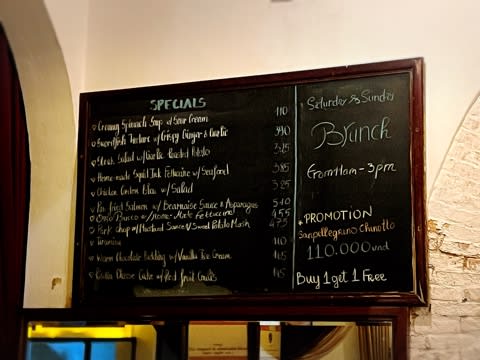 SPECIALS
Creamy Spinach Soup w/ Sour Cream 110
Swordfish Tartare w/ Crispy Ginger & Garlic 390
Steak Salad w/ Garlic Roasted Potato 325
Home-made Squid Ink Fettucine w/ Seafood 385
Chicken Cordon Bleu w/ Salad 325
Pan fried Salmon w/ Bearnaise Sauce & Asparagus 540
Osco Bucco w/ Home-Made Fettuccine 455
Pork Chop w/ Mustard Sauce & Sweet Potato Mash 475
Tiramisu 110
Warm Chocolate Pudding w/ Vanilla Ice Cream 145
Cheese Cake w/ Red fruit 145
Saturday & Sunday
Brunch
From 11am - 3pm
PROMOTION
Sanpellegrino Chinotto
110.000 vnd
Buy 1 get 1 Free